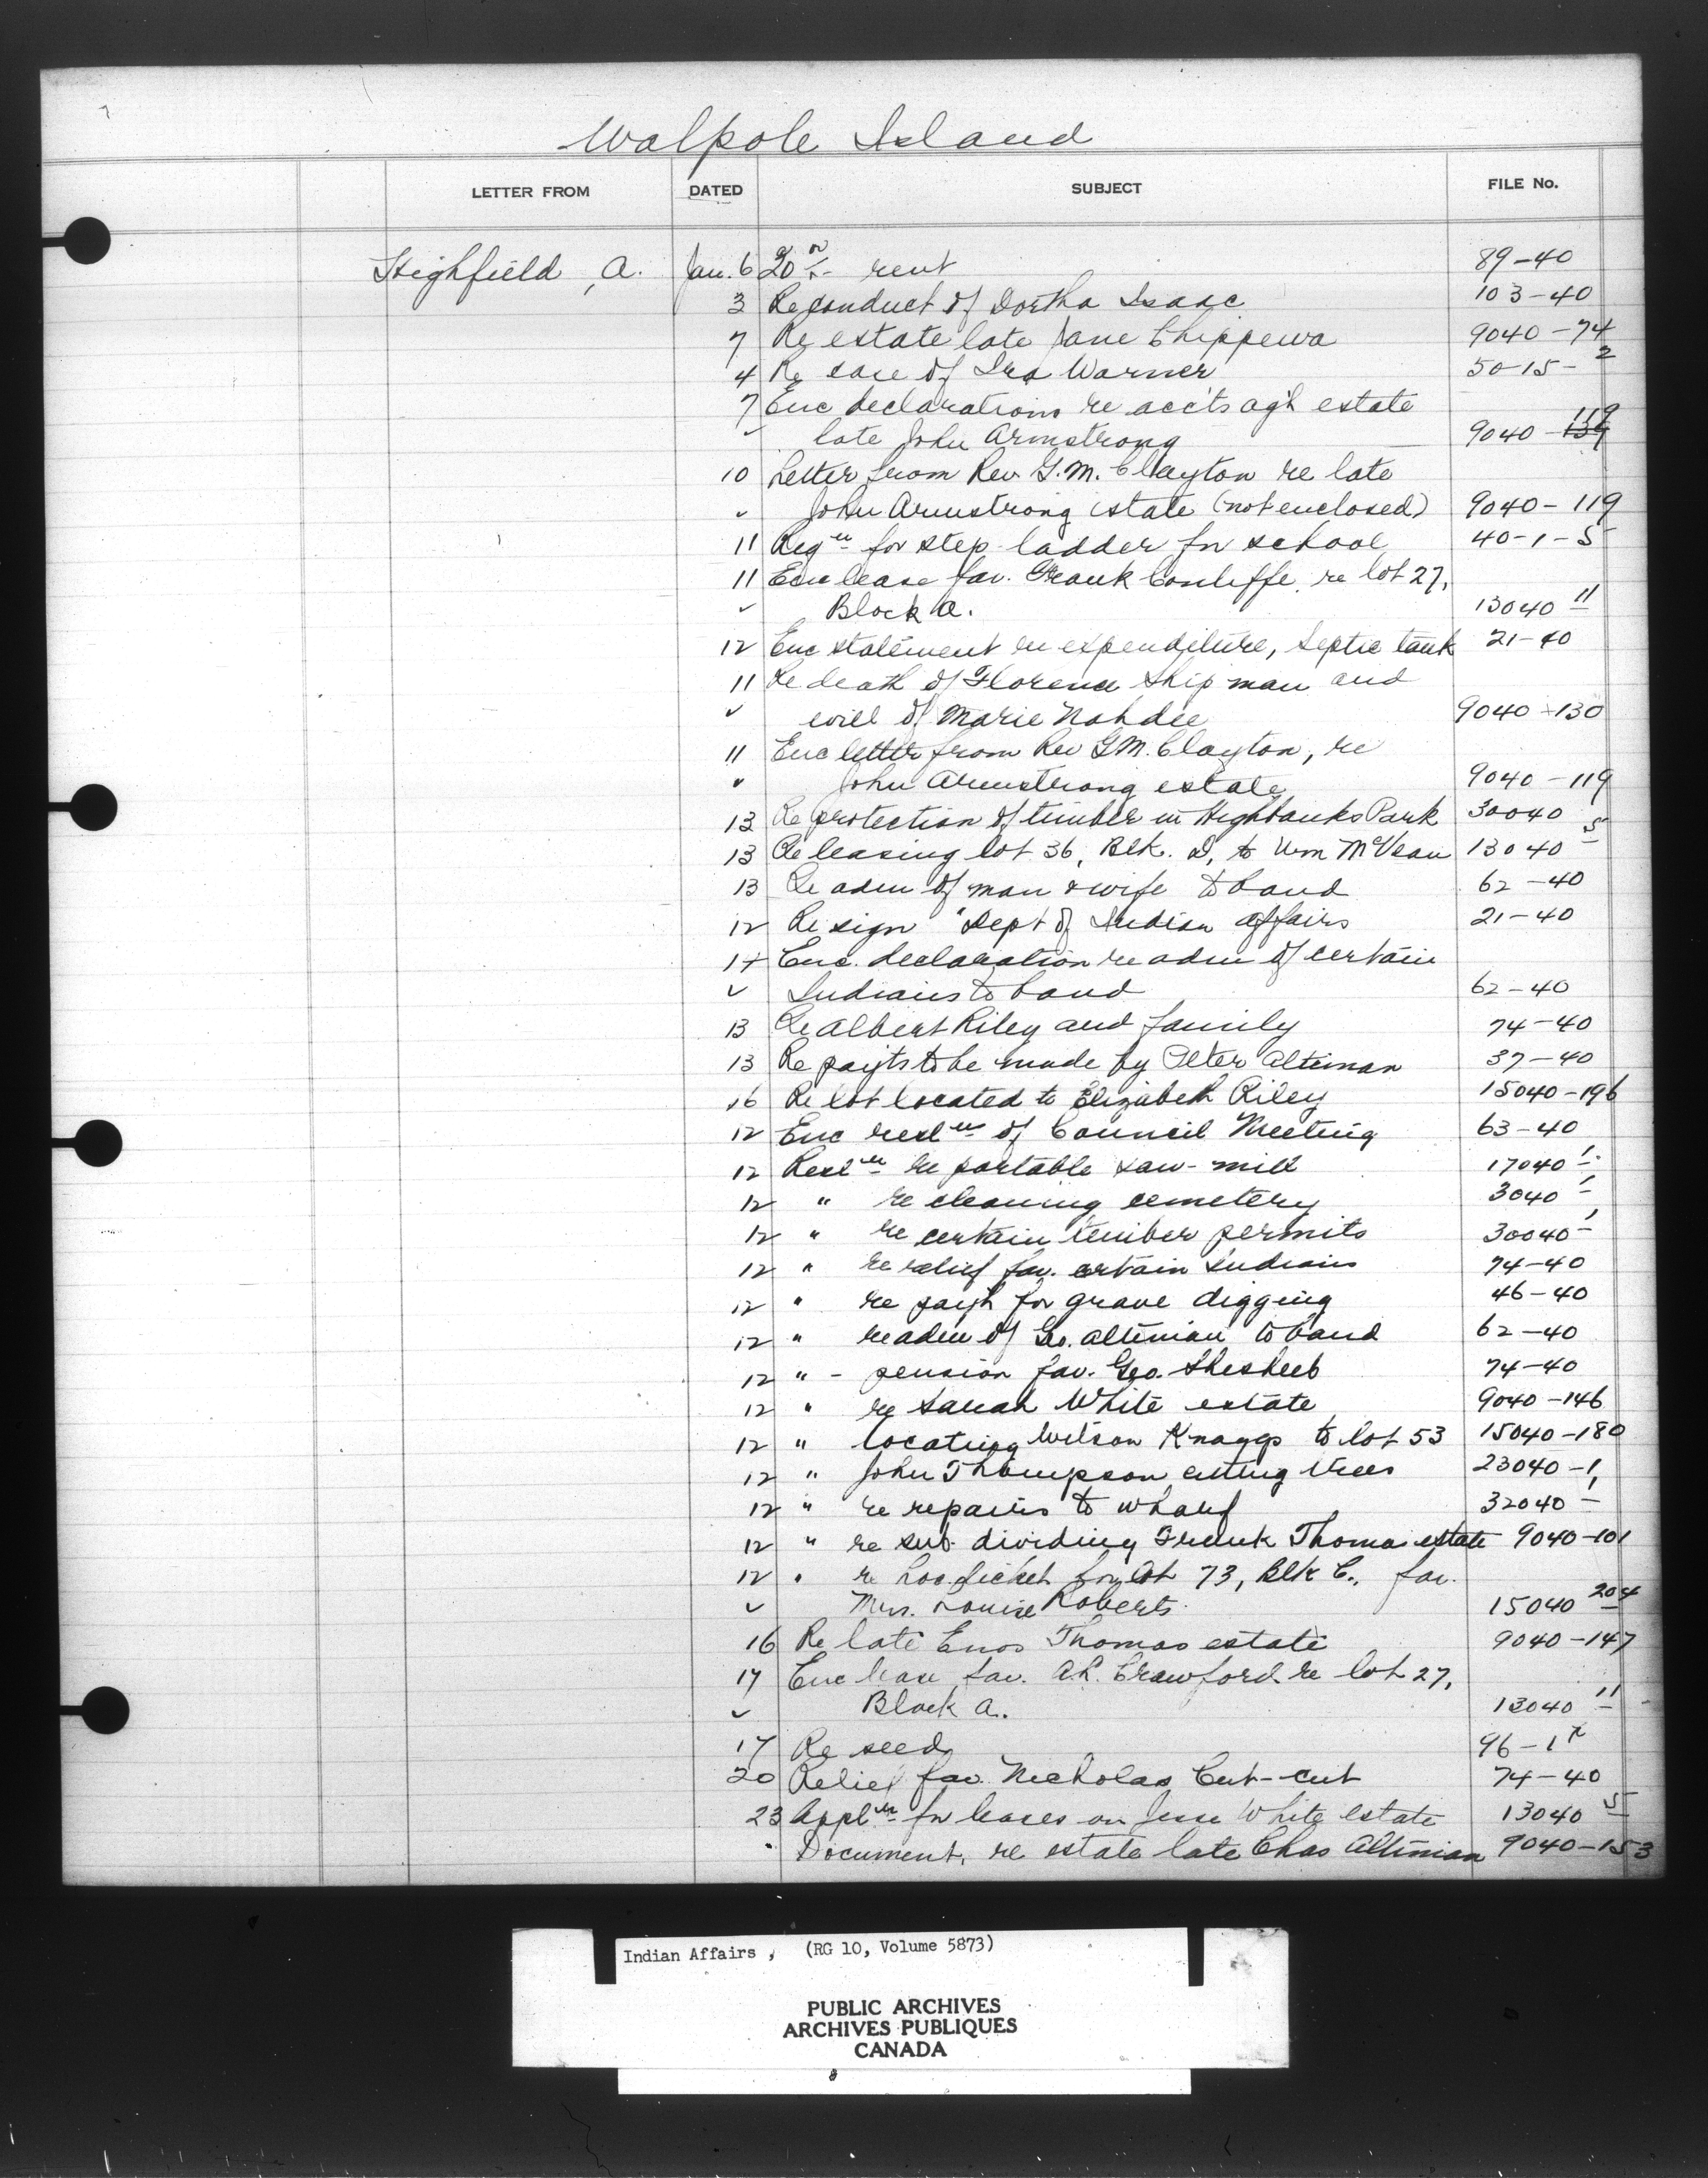 Walpole Island
LETTER FROM DATED SUBJECT FILE No.
Highfield, A. Jan. 6 20 rent 89-40
3 Re conduct of Dortha Isaac 103-40
7 Re estate late Jane Chippewa 9040-74
4 Re case of Ira Warner 50-15-2
7 Enc declarations re acc'ts ag't estate
✓ late John Armstrong 9040-119
10 Letter from Rev. G.M. Clayton re late
✓ John Armstrong estate (not enclosed) 9040-119
11 Reqn for step ladder for school 40-1-5
11 Enc lease fav. Frank Conliffe re lot 27,
✓ Block A. 13040 11
12 Enc statement re expenditure, septic tank 21-40
11 Re death of Florence Shipman and
✓ will of Marie Nahdee 9040-130
11 Enc letter from Rev G.M. Clayton, re
" John Armstrong estate 9040-119
13 Re protection of timber in Highbanks Park 30040
13 Re leasing lot 36, Blk. D, to Wm McVean 13040 5
13 Re adm of man & wife to band 62-40
12 Re sign "Dept of Indian affairs 21-40
14 Enc. declaration re adm of certain
✓ Indians to band 62-40
13 Re Albert Riley and family 74-40
13 Re payts to be made by Peter Altiman 37-40
16 Re lot located to Elizabeth Riley 15040-196
12 Enc resln of Council Meeting 63-40
12 Resln re portable saw-mill 17040 1
12 " re cleaning cemetery 3040 1
12 " re certain timber permits 30040 1
12 " re relief fav. certain Indians 74-40
12 " re payt for grave digging 46-40
12 " re adm of Geo. Altiman to band 62-40
12 " - pension fav. Geo. Shesheeb 74-40
12 " re Sarah White estate 9040-146
12 " locating Wilson Knaggs to lot 53 15040-180
12 " John Thompson cutting trees 23040-1
12 " re repairs to wharf 32040 1
12 " re sub-dividing Frank Thomas estate 9040-101
12 " re loc. ticket for lot 73, Blk C., fav.
✓ Mrs. Louise Roberts 15040 204
16 Re late Enos Thomas estate 9040-147
17 Enc lease fav. A.R. Crawford re lot 27,
✓ Block A. 13040 11
17 Re seed 96-1
20 Relief fav. Nicholas Cut-cut 74-40
23 Appln for leases on Jesse White estate 13040 5
" Document, re estate late Chas Altiman 9040-153
Indian Affairs, (RG 10, Volume 5873)
PUBLIC ARCHIVES
ARCHIVES PUBLIQUES
CANADA